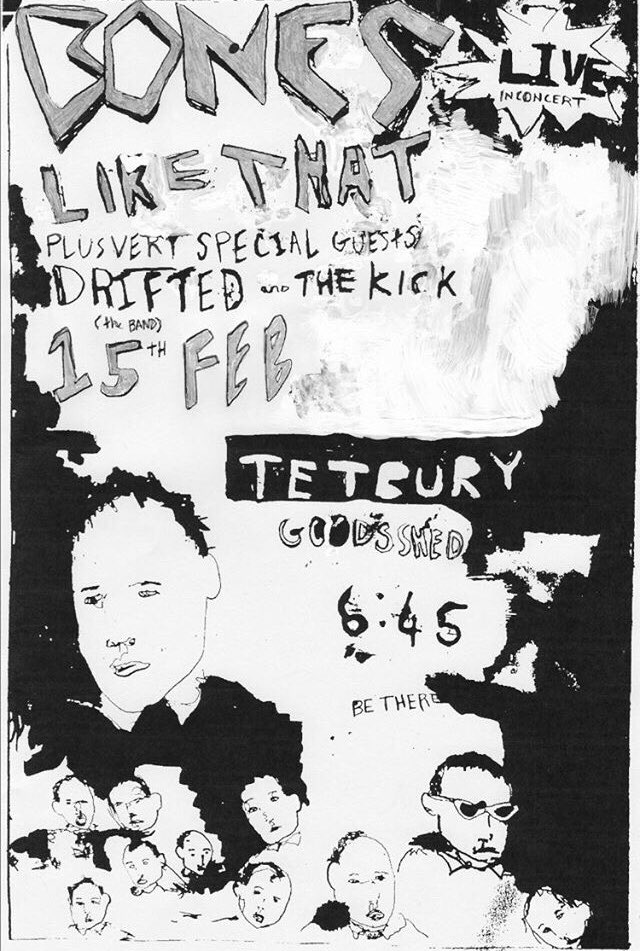 BONES
LIVE
IN CONCERT
LIKE THAT
PLUS VERY SPECIAL GUESTS
DRIFTED AND THE KICK
(the BAND)
15TH FEB
TETBURY
GOODS SHED
6:45
BE THERE